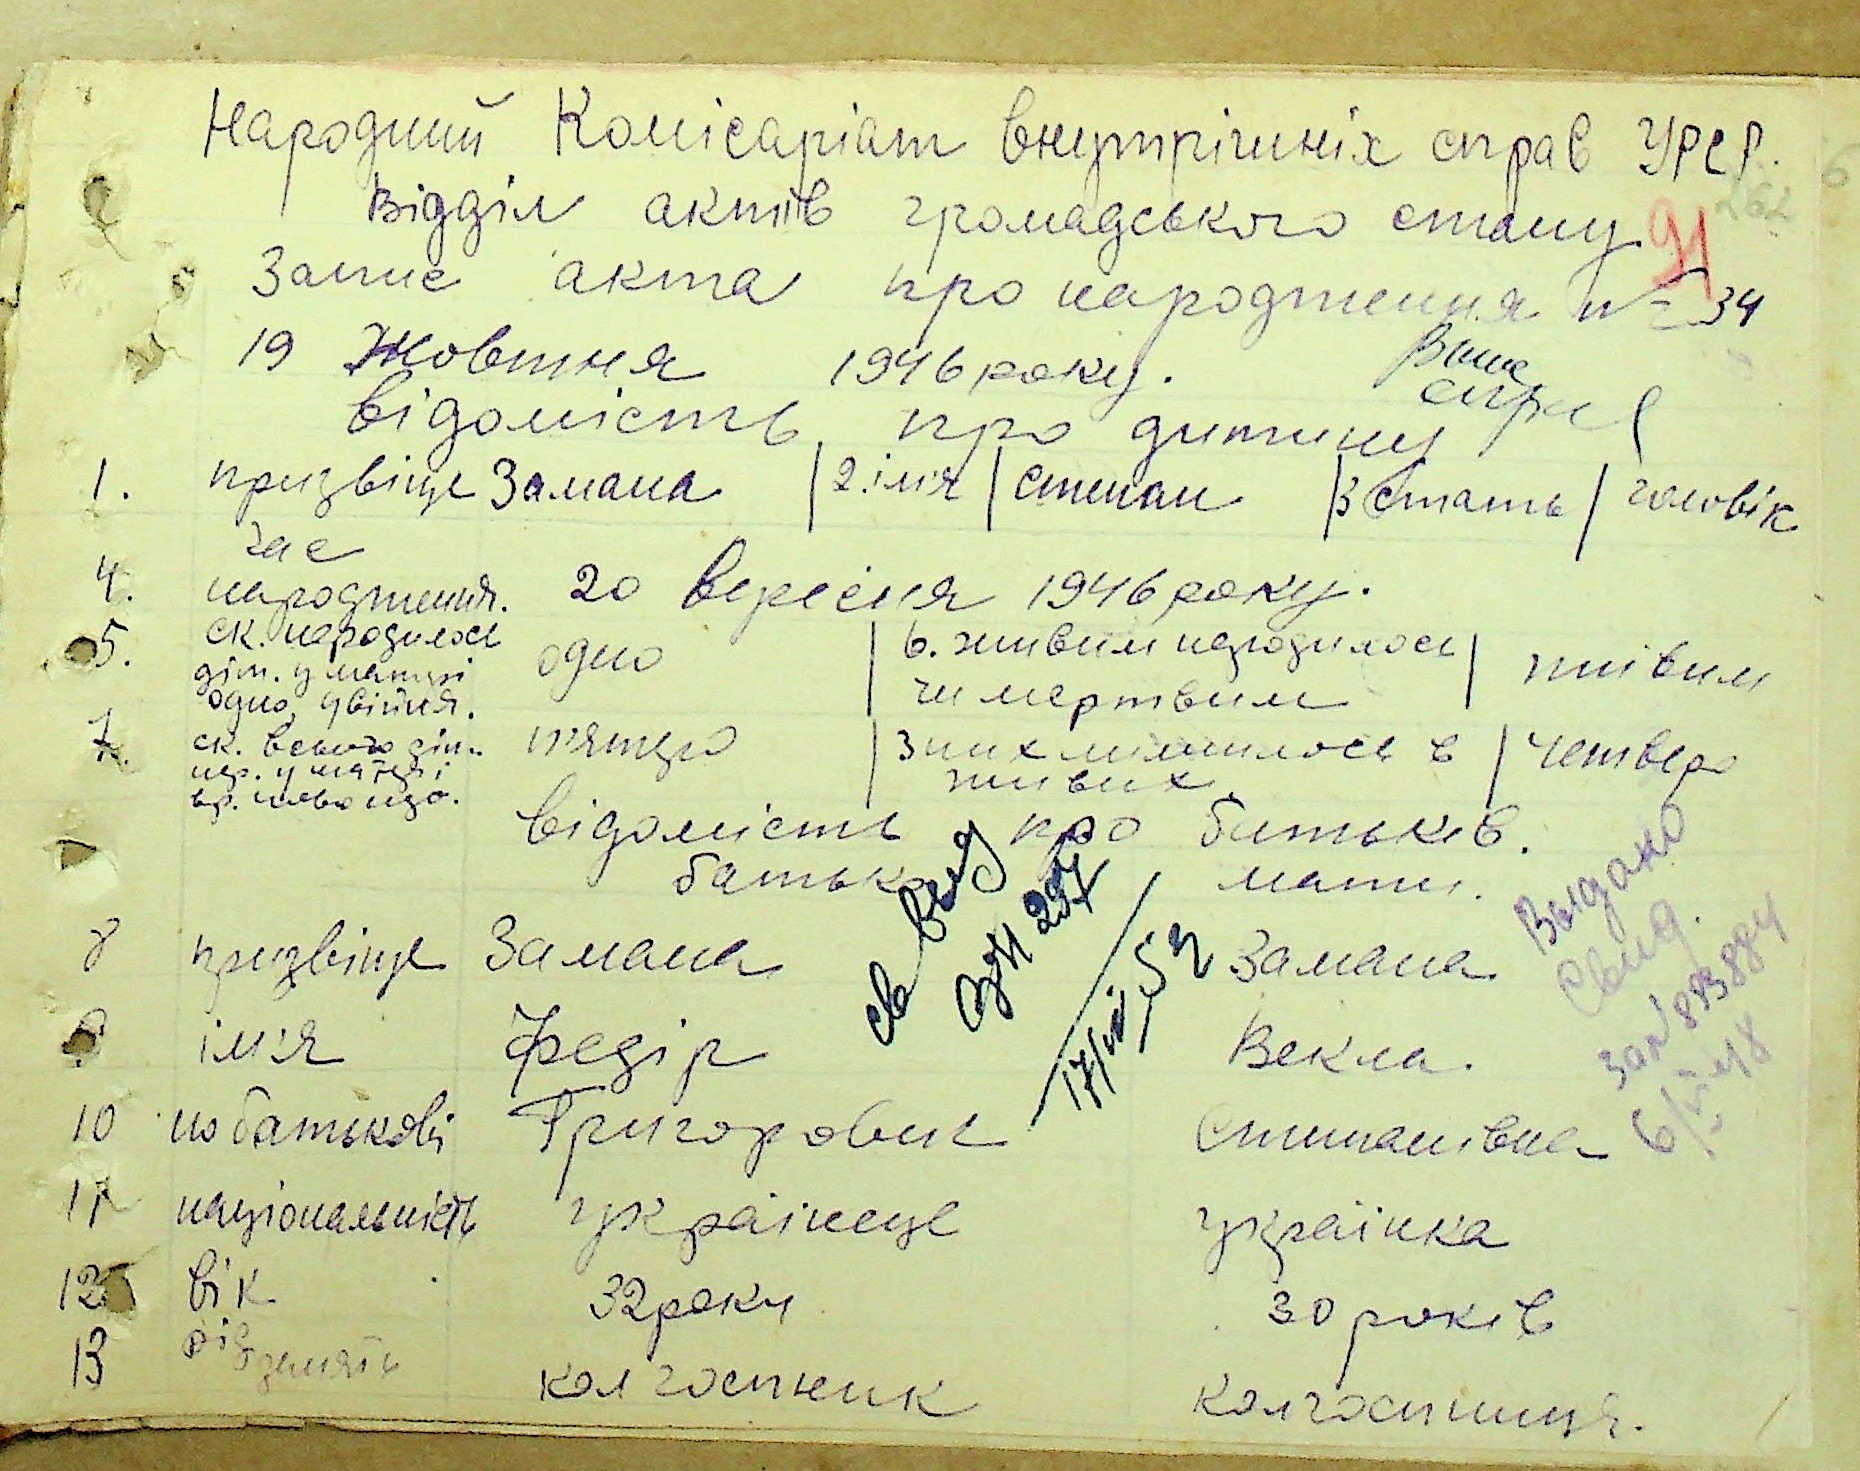 Народний Комісаріат внутрішніх справ УРСР.
Відділ актів громадського стану
91
262
Запис акта про народження № 34
19 Жовтня 1946 року.
відомість про дитину
1. призвіще Замана | 2. ім'я | Степан | 3 Стать | чоловік
4. час народження. 20 вересня 1946 року.
5. ск. народилось діт. у матері одно, двійня. одно | 6. живим народилось чи мертвим | живим
7. ск. всього діт. нар. у матері п'ятеро | З них лишилось в живих | четверо
відомість про батьків.
батько мати.
8 призвіще Замана Замана
9 ім'я Федір Векла.
10 по батькові Григорович Степанівна
11 національність українець українка
12 вік 32 роки 30 років
13 колгоспник колгоспниця.
Выдано
Свид.
6/II 48